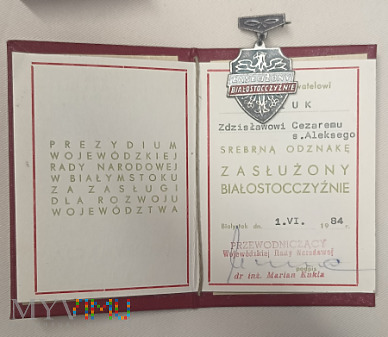 PREZYDIUM
WOJEWÓDZKIEJ
RADY NARODOWEJ
W BIAŁYMSTOKU
ZA ZASŁUGI
DLA ROZWOJU
WOJEWÓDZTWA
ZASŁUŻONY
BIAŁOSTOCCZYŹNIE
UK
Zdzisławowi Cezaremu
s.Aleksego
SREBRNĄ ODZNAKĘ
ZASŁUŻONY
BIAŁOSTOCCZYŹNIE
Białystok dn. 1.VI. 1984
PRZEWODNICZĄCY
Wojewódzkiej Rady Narodowej
podpis
dr inż. Marian Kukla
MYVIMU